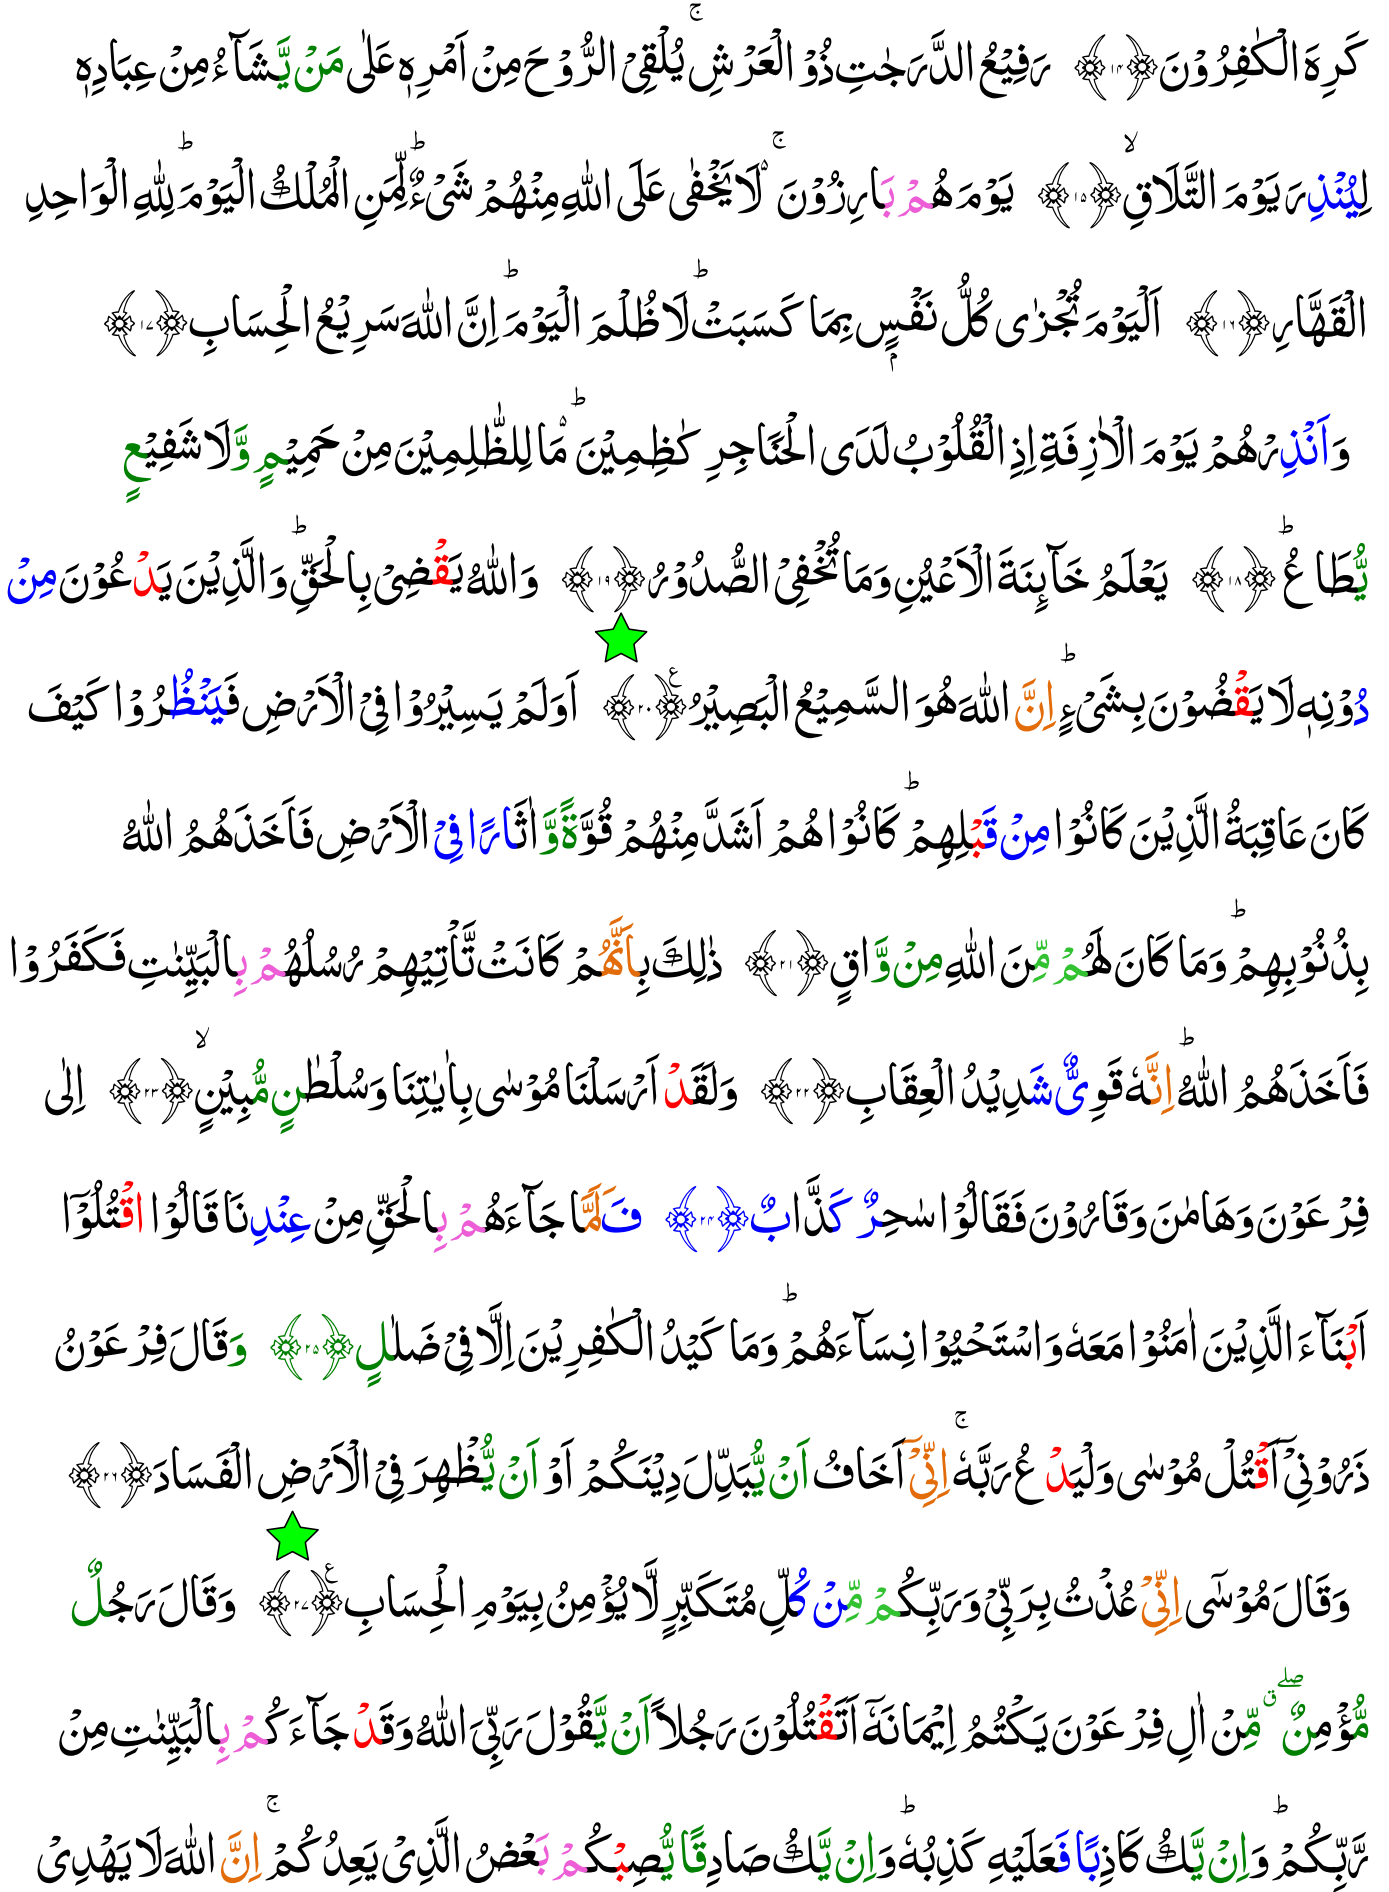 كَرِهَ الْكٰفِرُوْنَ ﴿۱۴﴾ رَفِيْعُ الدَّرَجٰتِ ذُوْ الْعَرْشِ ۚ يُلْقِى الرُّوْحَ مِنْ اَمْرِهٖ عَلٰى مَنْ يَّشَآءُ مِنْ عِبَادِهٖ
لِيُنْذِرَ يَوْمَ التَّلَاقِ ۙ ﴿۱۵﴾ يَوْمَ هُمْ بَارِزُوْنَ ۛۚ لَا يَخْفٰى عَلَى اللّٰهِ مِنْهُمْ شَىْءٌ ؕ لِّمَنِ الْمُلْكُ الْيَوْمَ ؕ لِلّٰهِ الْوَاحِدِ
الْقَهَّارِ ﴿۱۶﴾ اَلْيَوْمَ تُجْزٰى كُلُّ نَفْسٍۢ بِمَا كَسَبَتْ ؕ لَا ظُلْمَ الْيَوْمَ ؕ اِنَّ اللّٰهَ سَرِيْعُ الْحِسَابِ ﴿۱۷﴾
وَاَنْذِرْهُمْ يَوْمَ الْاٰزِفَةِ اِذِ الْقُلُوْبُ لَدَى الْحَنَاجِرِ كٰظِمِيْنَ ؕ مَا لِلظّٰلِمِيْنَ مِنْ حَمِيْمٍ وَّلَا شَفِيْعٍ
يُّطَاعُ ؕ ﴿۱۸﴾ يَعْلَمُ خَآٮِٕنَةَ الْاَعْيُنِ وَمَا تُخْفِى الصُّدُوْرُ ﴿۱۹﴾ وَاللّٰهُ يَقْضِىْ بِالْحَقِّ ؕ وَالَّذِيْنَ يَدْعُوْنَ مِنْ
دُوْنِهٖ لَا يَقْضُوْنَ بِشَىْءٍ ؕ اِنَّ اللّٰهَ هُوَ السَّمِيْعُ الْبَصِيْرُ ﴿۲۰﴾ اَوَلَمْ يَسِيْرُوْا فِىْ الْاَرْضِ فَيَنْظُرُوْا كَيْفَ
كَانَ عَاقِبَةُ الَّذِيْنَ كَانُوْا مِنْ قَبْلِهِمْ ؕ كَانُوْا هُمْ اَشَدَّ مِنْهُمْ قُوَّةً وَّاٰثَارًا فِىْ الْاَرْضِ فَاَخَذَهُمُ اللّٰهُ
بِذُنُوْبِهِمْ ؕ وَمَا كَانَ لَهُمْ مِّنَ اللّٰهِ مِنْ وَّاقٍ ﴿۲۱﴾ ذٰلِكَ بِاَنَّهُمْ كَانَتْ تَّاْتِيْهِمْ رُسُلُهُمْ بِالْبَيِّنٰتِ فَكَفَرُوْا
فَاَخَذَهُمُ اللّٰهُ ؕ اِنَّهٗ قَوِىٌّ شَدِيْدُ الْعِقَابِ ﴿۲۲﴾ وَلَقَدْ اَرْسَلْنَا مُوْسٰى بِاٰيٰتِنَا وَسُلْطٰنٍ مُّبِيْنٍ ۙ ﴿۲۳﴾ اِلٰى
فِرْعَوْنَ وَهَامٰنَ وَقَارُوْنَ فَقَالُوْا سٰحِرٌ كَذَّابٌ ﴿۲۴﴾ فَلَمَّا جَآءَهُمْ بِالْحَقِّ مِنْ عِنْدِنَا قَالُوْا اقْتُلُوْۤا
اَبْنَآءَ الَّذِيْنَ اٰمَنُوْا مَعَهٗ وَاسْتَحْيُوْا نِسَآءَهُمْ ؕ وَمَا كَيْدُ الْكٰفِرِيْنَ اِلَّا فِىْ ضَلٰلٍ ﴿۲۵﴾ وَقَالَ فِرْعَوْنُ
ذَرُوْنِىْۤ اَقْتُلْ مُوْسٰى وَلْيَدْعُ رَبَّهٗ ۚ اِنِّىْۤ اَخَافُ اَنْ يُّبَدِّلَ دِيْنَكُمْ اَوْ اَنْ يُّظْهِرَ فِىْ الْاَرْضِ الْفَسَادَ ﴿۲۶﴾
وَقَالَ مُوْسٰٓى اِنِّىْ عُذْتُ بِرَبِّىْ وَرَبِّكُمْ مِّنْ كُلِّ مُتَكَبِّرٍ لَّا يُؤْمِنُ بِيَوْمِ الْحِسَابِ ﴿۲۷﴾ وَقَالَ رَجُلٌ
مُّؤْمِنٌ ۖ ق مِّنْ اٰلِ فِرْعَوْنَ يَكْتُمُ اِيْمَانَهٗۤ اَتَقْتُلُوْنَ رَجُلًا اَنْ يَّقُوْلَ رَبِّىَ اللّٰهُ وَقَدْ جَآءَكُمْ بِالْبَيِّنٰتِ مِنْ
رَّبِّكُمْ ؕ وَاِنْ يَّكُ كَاذِبًا فَعَلَيْهِ كَذِبُهٗ ؕ وَاِنْ يَّكُ صَادِقًا يُّصِبْكُمْ بَعْضُ الَّذِىْ يَعِدُكُمْ ۚ اِنَّ اللّٰهَ لَا يَهْدِىْ